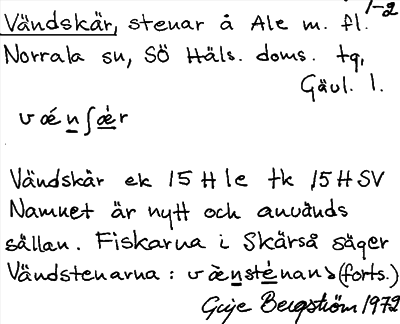 1-2
Vändskär, stenar å Ale m. fl.
Norrala sn, SÖ Häls. doms. tg,
Gävl. l.
vǽn̲ʃæ̲̀r
Vändskär ek 15 H 1e tk 15 H SV
Namnet är nytt och används
sällan. Fiskarna i Skärså säger
Vändstenarna : væ̀n̲sté̲nanɘ (forts.)
Gije Bergström 1972